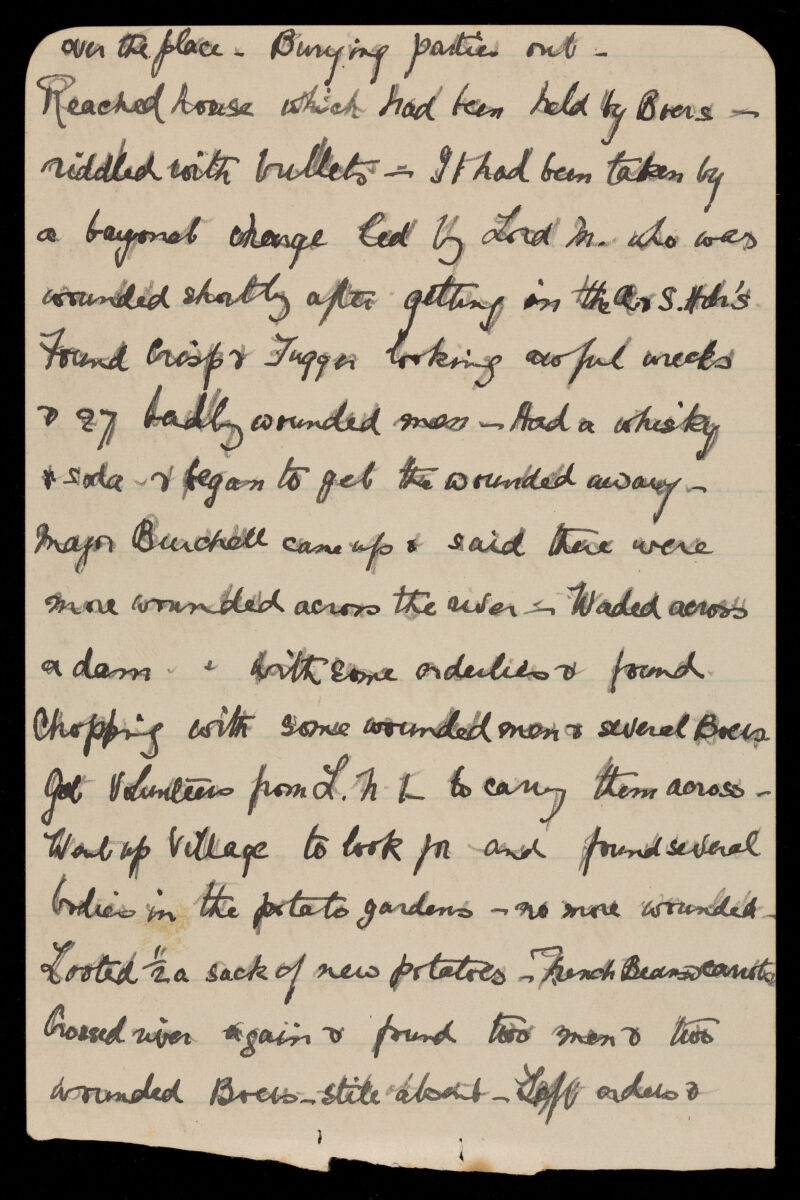 over the place - Burying parties out -
Reached house which had been held by Boers -
riddled with bullets - It had been taken by
a bayonet charge led by Lord M. who was
wounded shortly after getting in the A & S. Hdr's
Found Crisp & Tugger looking awful wrecks
& 27 badly wounded men - Had a whisky
& soda & began to get the wounded away -
Major Burchell came up & said there were
more wounded across the river - Waded across
a dam with some orderlies & found
Chopping with some wounded men & several Boers
Got Volunteers from L. N L to carry them across -
Went up Village to look for and found several
bodies in the potato gardens - no more wounded -
Looted 1/2 a sack of new potatoes - French Beans & carrots
Crossed river again & found two men & two
wounded Boers - still about - Left orders &